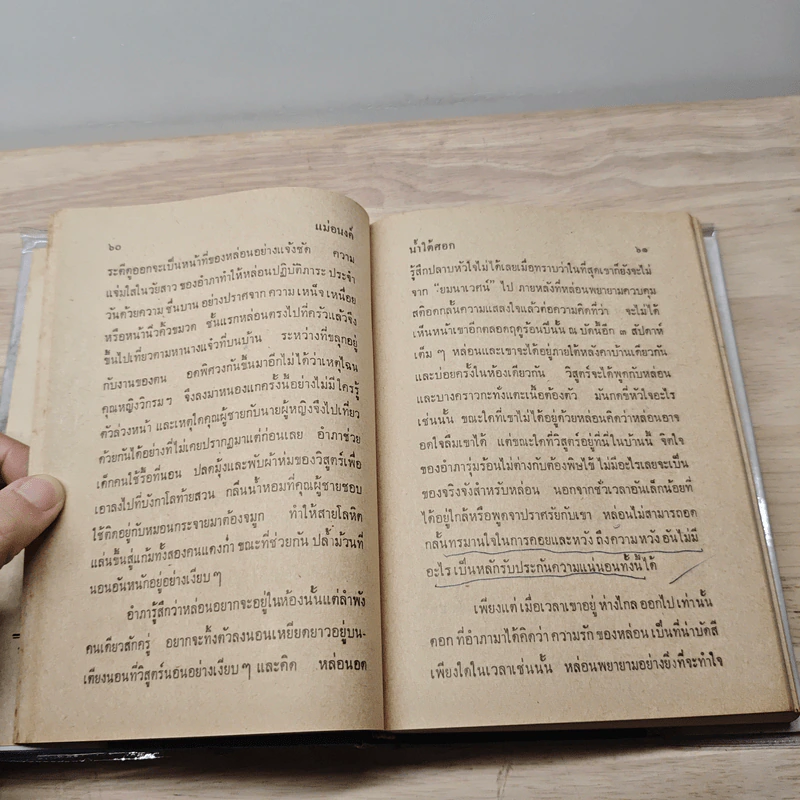 ๖๐
แม่อนงค์
ระคีดูออกจะเป็นหน้าที่ของหล่อนอย่างแจ้งชัด ความ
แจ่มใสในวัยสาว ของอำภาทำให้หล่อนปฏิบัติภาระ ประจำ
วันด้วยความ ชื่นบาน อย่างปราศจาก ความ เหน็จ เหนื่อย
หรือหน้านิ่วคิ้วขมวด ชั้นแรกหล่อนตรงไปที่ครัวแล้วจึง
ขึ้นไปเที่ยวตามหานางแจ๋วที่บนบ้าน ระหว่างที่ขลุกอยู่
กับงานของตน อดพิศวงกันขึ้นมาอีกไม่ได้ว่าเหตุไฉน
คุณหญิงวิกรมฯ จึงลงมาหนองแกครั้งนี้อย่างไม่มีใครรู้
ตัวล่วงหน้า และเหตุใดคุณผู้ชายกับนายผู้หญิงจึงไปเที่ยว
ด้วยกันได้อย่างที่ไม่เคยปรากฏมาแต่ก่อนเลย อำภาช่วย
เด็กคนใช้รื้อที่นอน ปลดมุ้งและพับผ้าห่มของวิสูตรเพื่อ
เอาลงไปที่บังกาโลท้ายสวน กลิ่นน้ำหอมที่คุณผู้ชายชอบ
ใช้ติดอยู่กับหมอนกระจายมาต้องจมูก ทำให้สายโลหิต
แล่นขึ้นสู่แก้มทั้งสองคนแดงก่ำ ขณะที่ช่วยกัน ปล้ำม้วนที่
นอนอันหนักอยู่อย่างเงียบ ๆ
อำภารู้สึกว่าหล่อนอยากจะอยู่ในห้องนั้นแต่ลำพัง
คนเดียวสักครู่ อยากจะทิ้งตัวลงนอนเหยียดยาวอยู่บน-
เตียงนอนที่วิสูตร์นอนอย่างเงียบ ๆ และคิด หล่อนอด
น้ำใต้ศอก
๖๑
รู้สึกปลาบหัวใจไม่ได้เลยเมื่อทราบว่าในที่สุดเขาก็ยังจะไม่
จาก "ยมนาเวศน์" ไป ภายหลังที่หล่อนพยายามควบคุม
สติอดกลั้นความแสลงใจแล้วต่อความคิดที่ว่า จะไม่ได้
เห็นหน้าเขาอีกตลอดฤดูร้อนปีนั้น ณ บัดนี้อีก ๓ สัปดาห์
เต็ม ๆ หล่อนและเขาจะได้อยู่ภายใต้หลังคาบ้านเดียวกัน
และบ่อยครั้งในห้องเดียวกัน วิสูตร์จะได้พูดกับหล่อน
และบางคราวกะทั่งแตะเนื้อต้องตัว มันกดขี่หัวใจอะไร
เช่นนั้น ขณะใดที่เขาไม่ได้อยู่ด้วยหล่อนคิดว่าหล่อนอาจ
อดใจลืมเขาได้ แต่ขณะใดที่วิสูตร์อยู่ที่นี่ในบ้านนี้ จิตใจ
ของอำภารุ่มร้อนไม่ต่างกับต้องพิษไข้ ไม่มีอะไรเลยจะเป็น
ของจริงจังสำหรับหล่อน นอกจากชั่วเวลาอันเล็กน้อยที่
ได้อยู่ใกล้หรือพูดจาปราศรัยกับเขา หล่อนไม่สามารถอด
กลั้นทรมานใจในการคอยและหวัง ถึงความหวัง อันไม่มี
อะไร เป็นหลักรับประกันความแน่นอนทั้งนี้ได้
เพียงแต่ เมื่อเวลาเขาอยู่ ห่างไกล ออกไป เท่านั้น
ดอก ที่อำภามาได้คิดว่า ความรัก ของหล่อน เป็นที่น่าบัดสี
เพียงใดในเวลาเช่นนั้น หล่อนพยายามอย่างยิ่งที่จะทำใจ